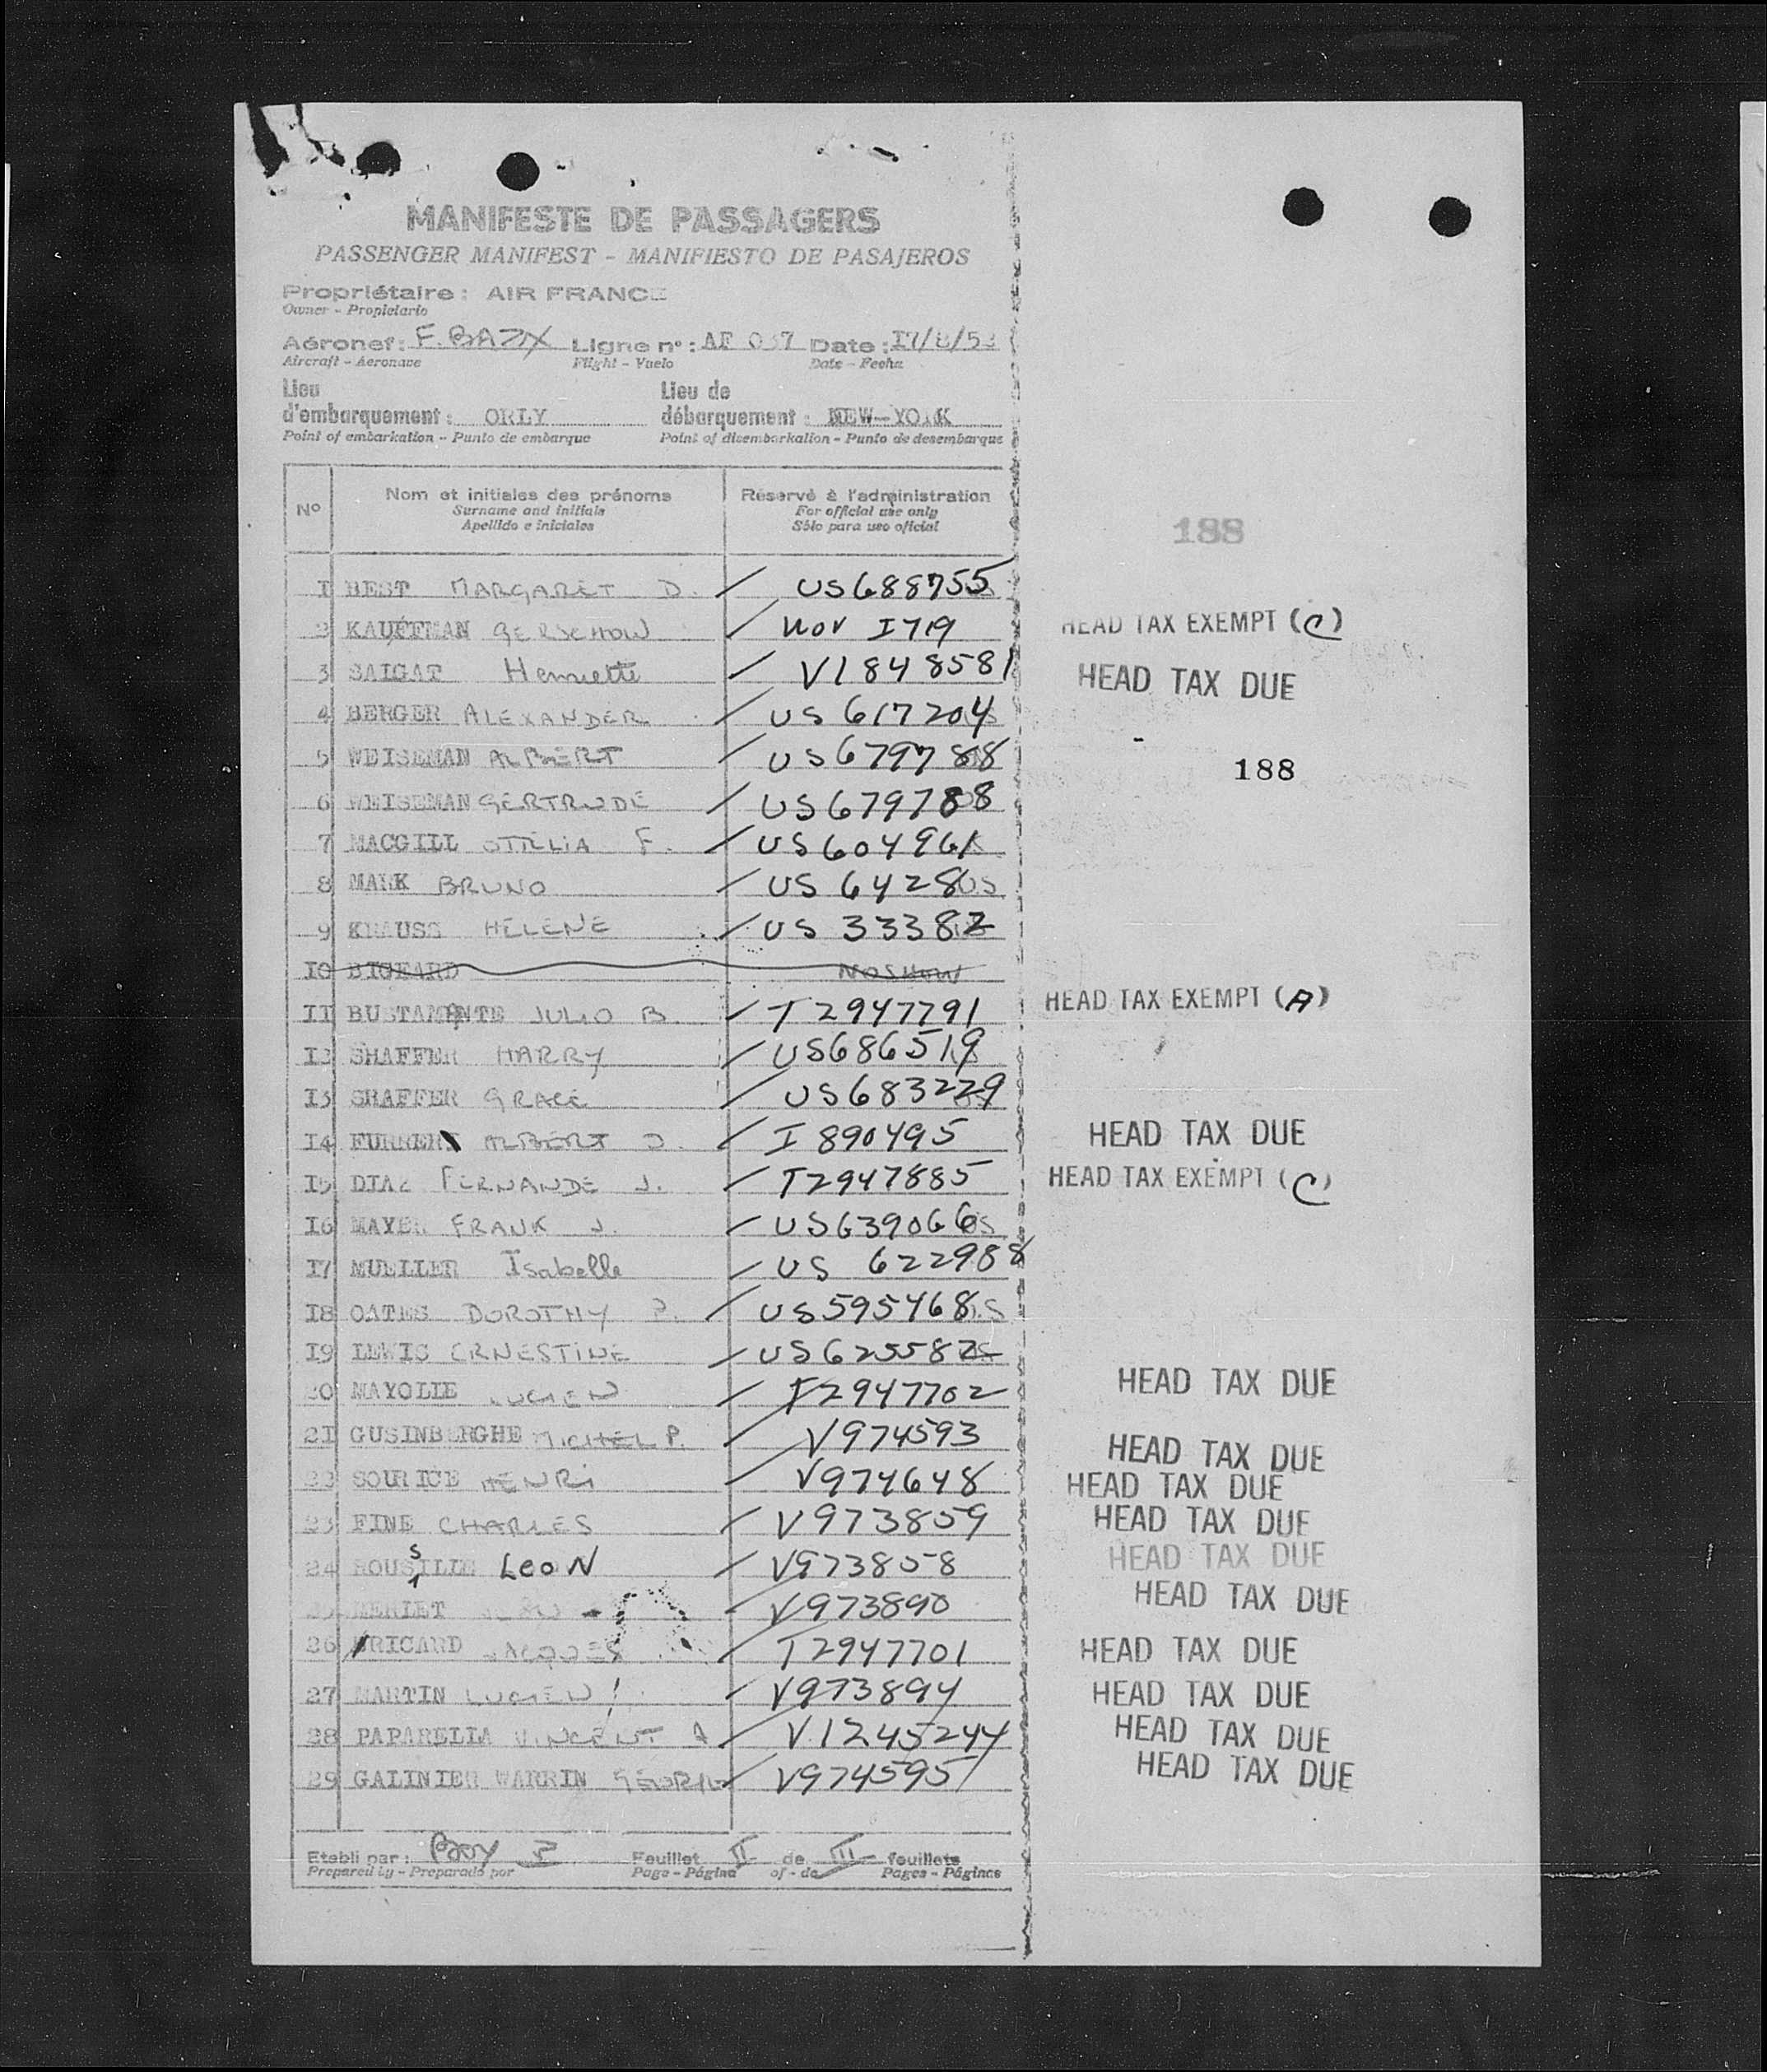 MANIFESTE DE PASSAGERS
PASSENGER MANIFEST - MANIFIESTO DE PASAJEROS
Propriétaire : AIR FRANCE
Owner - Propietario
Aéronef : F.BAZX Ligne n° : AF 037 Date : I7/8/53
Aircraft - Aeronave Flight - Vuelo Date - Fecha
Lieu d'embarquement : ORLY Lieu de débarquement : NEW-YORK
Point of embarkation - Punto de embarque Point of disembarkation - Punto de desembarque
N° Nom et initiales des prénoms Réservé à l'administration
Surname and initials For official use only
Apellido e iniciales Sólo para uso oficial
188
I BEST MARGARET D. US688755
2 KAUFFMAN GERSCHOW nov I719 HEAD TAX EXEMPT (C)
3 SAIGAT Henriette V1848581 HEAD TAX DUE
4 BERGER ALEXANDER US 617204
5 WEISEMAN ALBERT US679788
188
6 WEISEMAN GERTRUDE US679788
7 MACGILL OTTILIA F. US604961
8 MARK BRUNO US 64286
9 KRAUSS HELENE US 33382
I0 BIGEARD NOSHOW
II BUSTAMANTE JULIO B. T2947791 HEAD TAX EXEMPT (A)
I2 SHAFFER HARRY US686519
I3 SHAFFER GRACE US683229
I4 FURRER ALBERT J. I 890495 HEAD TAX DUE
I5 DIAZ FERNANDE J. T2947885 HEAD TAX EXEMPT (C)
I6 MAYER FRANK J. US639066
I7 MUELLER Isabelle US 622988
I8 OATES DOROTHY P. US595468
I9 LEWIS ERNESTINE US625582
20 MAYOLLE LUCIEN T2947702 HEAD TAX DUE
2I GUSINBERGHE MICHEL P. V974593 HEAD TAX DUE
22 SOURICE HENRI V974648 HEAD TAX DUE
23 FINE CHARLES V973859 HEAD TAX DUE
24 ROUSSILLE LEON V973858 HEAD TAX DUE
25 MERLET V973890 HEAD TAX DUE
26 BRICARD JACQUES T2947701 HEAD TAX DUE
27 MARTIN LUCIEN V973894 HEAD TAX DUE
28 PAPARELLA VINCENT A V1245244 HEAD TAX DUE
29 GALINIER WARRIN GEORGES V974595 HEAD TAX DUE
Etabli par : Feuillet II de III feuillets
Prepared by - Preparado por Page - Página of - de Pages - Páginas